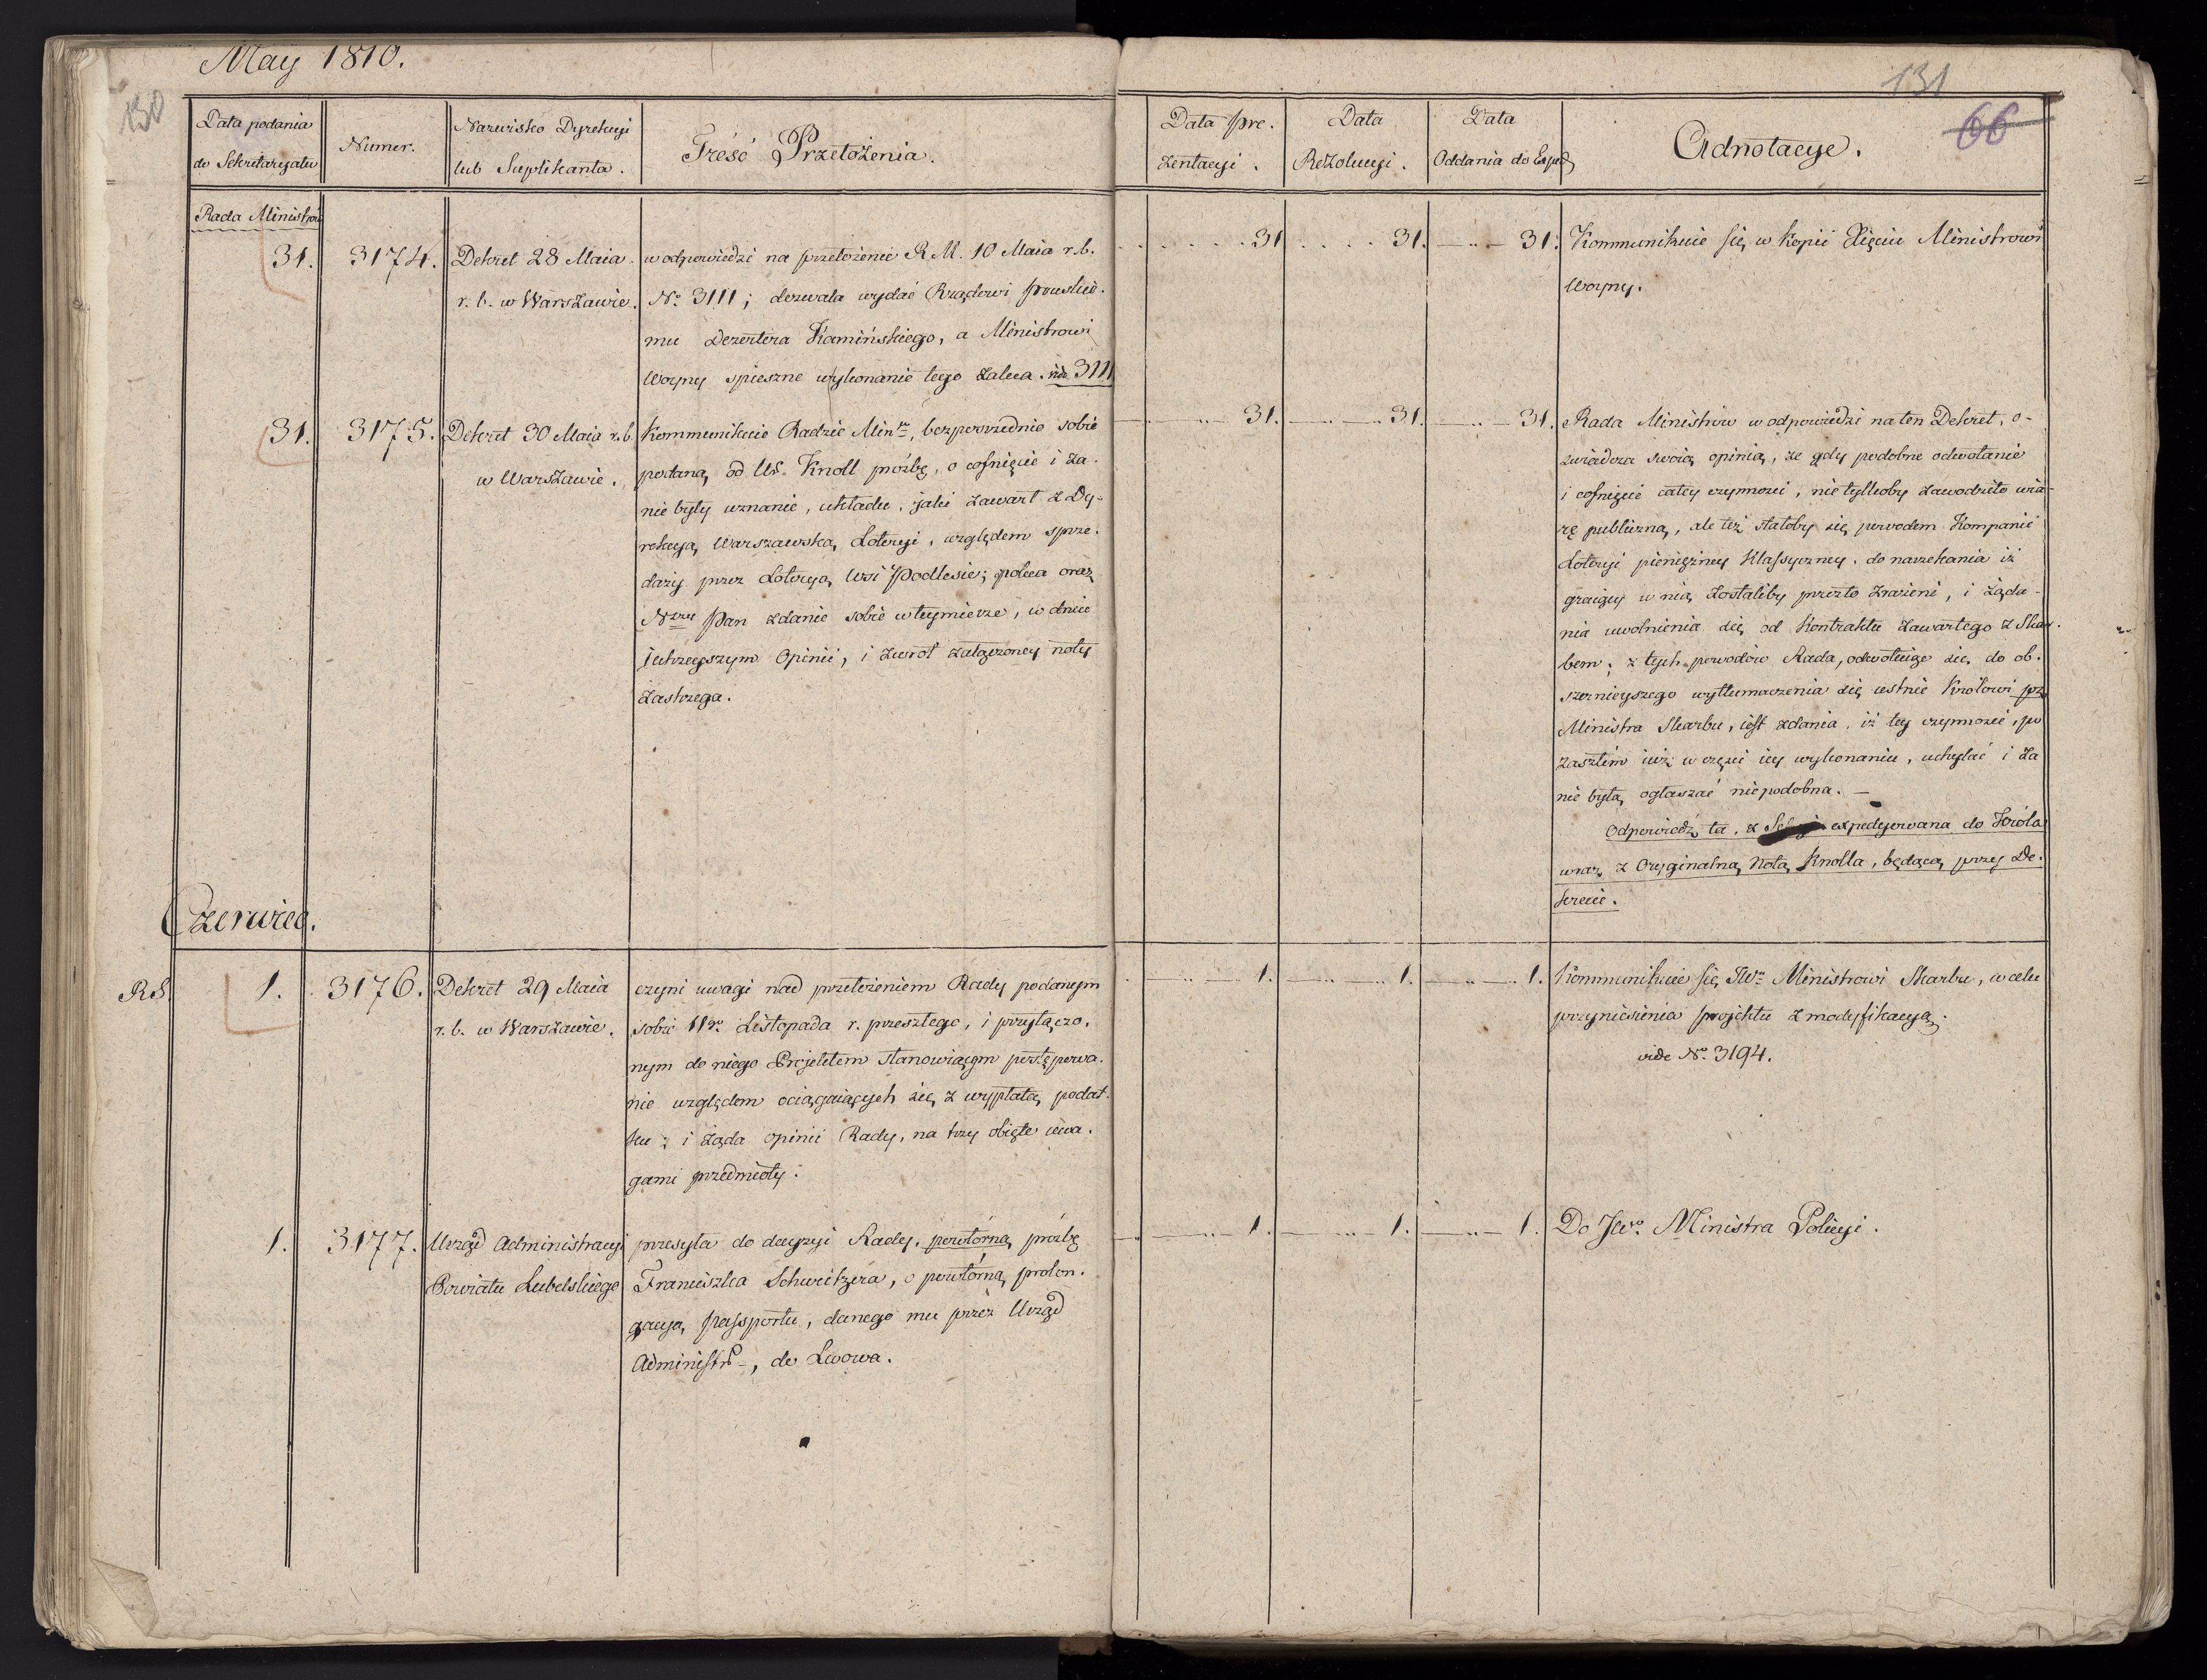 May 1810.
130
Data podania
do Sekretaryatu
Numer.
Nazwisko Dyrekcyi
lub Suplikanta.
Treść Przełożenia.
Rada Ministrów
31.
3174.
Dekret 28 Maia
r. b. w Warszawie.
w odpowiedzi na przełożenie R. M. 10 Maia r. b.
No. 3111; dozwala wydać Rządowi pruskie-
mu Dezertera Kamińskiego, a Ministrowi
Woyny spieszne wykonanie tego zaleca. vide 3111
31.
3175.
Dekret 30 Maia r. b.
w Warszawie.
Kommunikuie Radzie Minrw, bezpośrednio sobie
podaną od Ur. Knoll prośbę, o cofnięcie i za
nie były uznanie, układu, jaki zawarł z Dy-
rekcyą Warszawską Loteryi, względem sprze-
daży przez Loteryą Wsi Podlesie; poleca oraz
Nayy Pan zdanie sobie w teymierze, w dniu
jutrzeyszym Opinii, i zwrot załączoney noty
zastrzega.
Czerwiec.
RS.
1.
3176.
Dekret 29 Maia
r. b. w Warszawie.
czyni uwagi nad przełożeniem Rady podanym
sobie 11go Listopada r. przeszłego, i przyłączo-
nym do niego Projektem stanowiącym postępowa-
nie względem ociągaiących się z wypłatą podat-
ku; i żąda opinii Rady, na trzy obięte uwa-
gami przedmioty.
1.
3177.
Urząd Administracyi
Powiatu Lubelskiego
przesyła do decyzyi Rady, powtórną prośbę
Franciszka Schweitzera, o powtórną prolon-
gacyą passportu, danego mu przez Urząd
Administr, do Lwowa.
131
66
Data pre-
zentacyi.
Data
Rezolucyi.
Data
Oddania do Exped
Adnotacye.
31 31. 31.
Kommunikuie się w kopii Xięciu Ministrowi
Woyny.
31. 31. 31.
Rada Ministrów w odpowiedzi na ten Dekret, o-
świadcza swoią opinią, że gdy podobne odwołanie
i cofnięcie całey czynności, nietylkoby zawodziło wia-
rę publiczną, ale też stałoby się powodem Kompanii
Loteryi pieniężney Klassyczney, do narzekania iż
graiący w nią zostaliby przezto zrażeni, i żąda-
nia uwolnienia się od Kontraktu zawartego z Skar-
bem; z tych powodów Rada, odwołuiąc się do ob-
szernieyszego wytłumaczenia się ustnie Królowi prz
Ministra Skarbu, iest zdania, iż tey czynności, po
zaszłém iuż w części iey wykonaniu, uchylać i za
nie byłą ogłaszać niepodobna. —
Odpowiedź ta, z expedyowana do Króla
wraz z Oryginalną Notą Knolla, będącą przy De-
krecie.
1. 1. 1.
Kommunikuie się JWu Ministrowi Skarbu, w celu
przyniesienia projektu z modyfikacyą.
vide No. 3194.
1. 1. 1.
Do JWo. Ministra Policyi.